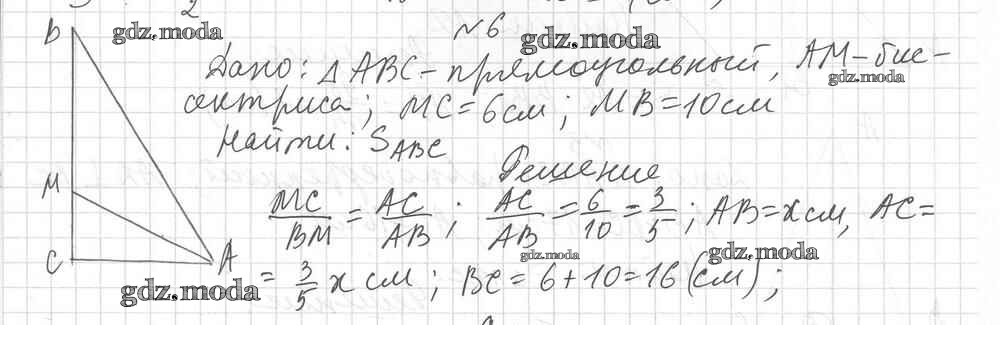 №6
Дано: △ABC - прямоугольный, AM - бис-
сектриса; MC = 6 см; MB = 10 см
Найти: S_ABC
Решение
MC/BM = AC/AB; AC/AB = 6/10 = 3/5; AB = x см, AC =
= 3/5 x см; BC = 6 + 10 = 16 (см);
B
M
C
A
gdz.moda
gdz.moda
gdz.moda
gdz.moda
gdz.moda
gdz.moda